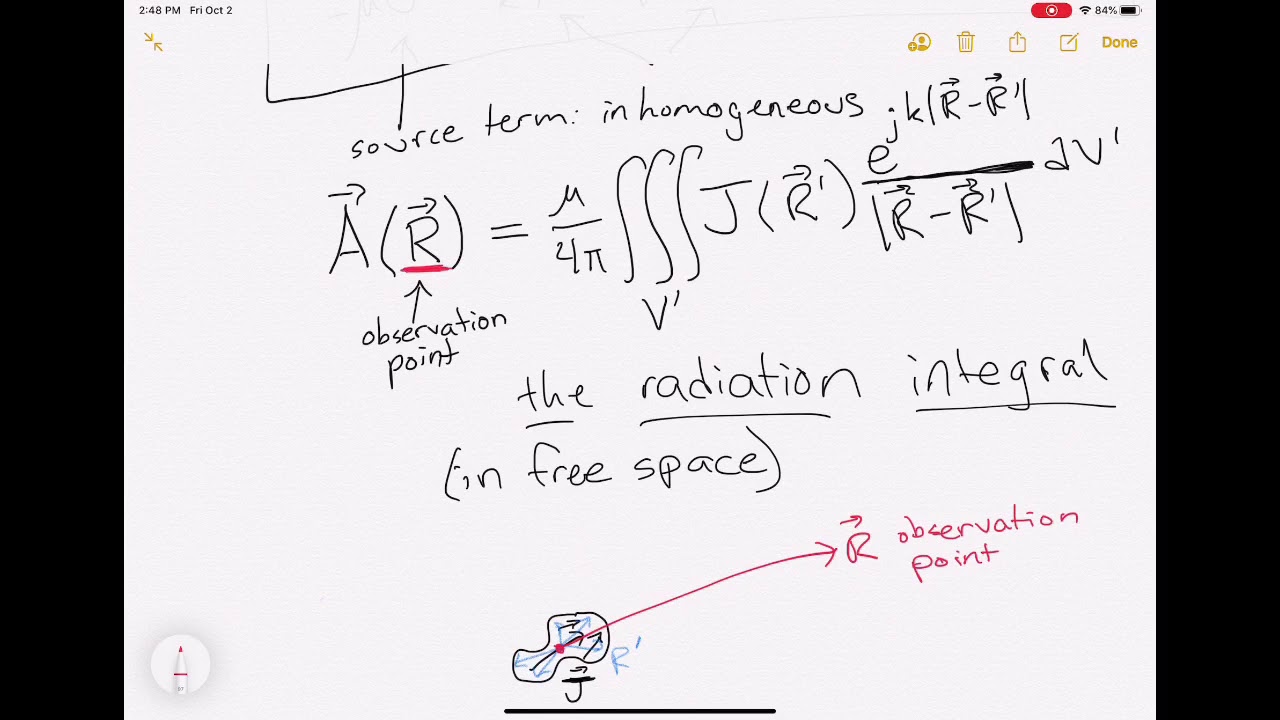 2:48 PM Fri Oct 2
84%
Done
source term: inhomogeneous
A⃗(R⃗) = μ/4π ∭_V' J(R⃗') e^{jk|R⃗-R⃗'|}/|R⃗-R⃗'| dV'
observation
point
the radiation integral
(in free space)
R⃗ observation
point
R'
J⃗